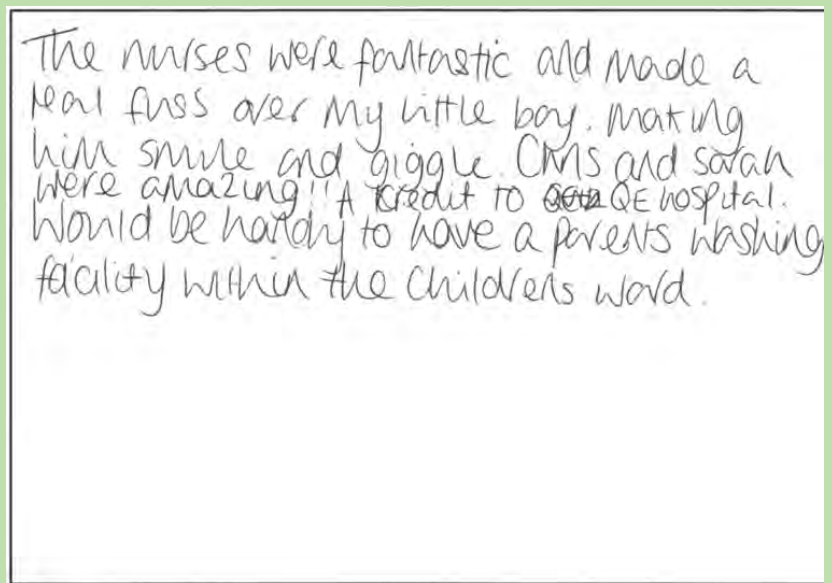 The nurses were fantastic and made a
real fuss over my little boy. Making
him smile and giggle. Chris and Sarah
were amazing!! A credit to QE hospital.
Would be handy to have a parents washing
facility within the childrens ward.